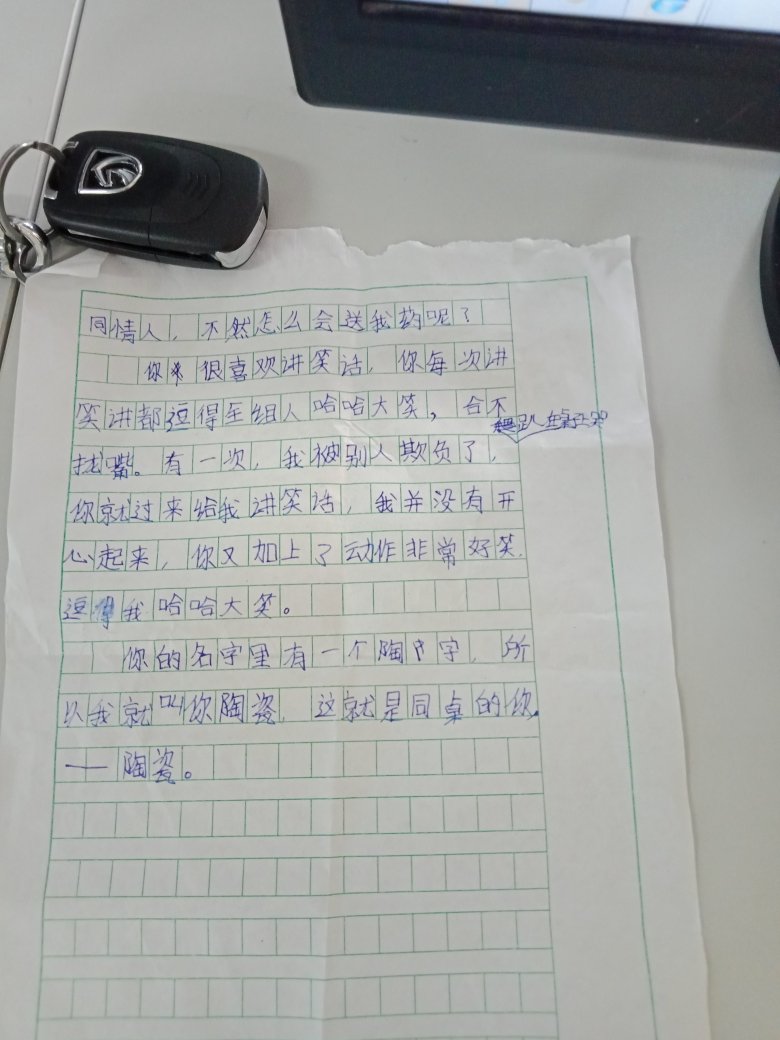 同情人，不然怎么会送我药呢？
你很喜欢讲笑话，你每次讲
笑讲都逗得全组人哈哈大笑，合不
拢嘴。有一次，我被别人欺负了，
你就过来给我讲笑话，我并没有开
心起来，你又加上了动作非常好笑，
逗得我哈哈大笑。
你的名字里有一个陶字，所
以我就叫你陶瓷，这就是同桌的你。
——陶瓷。